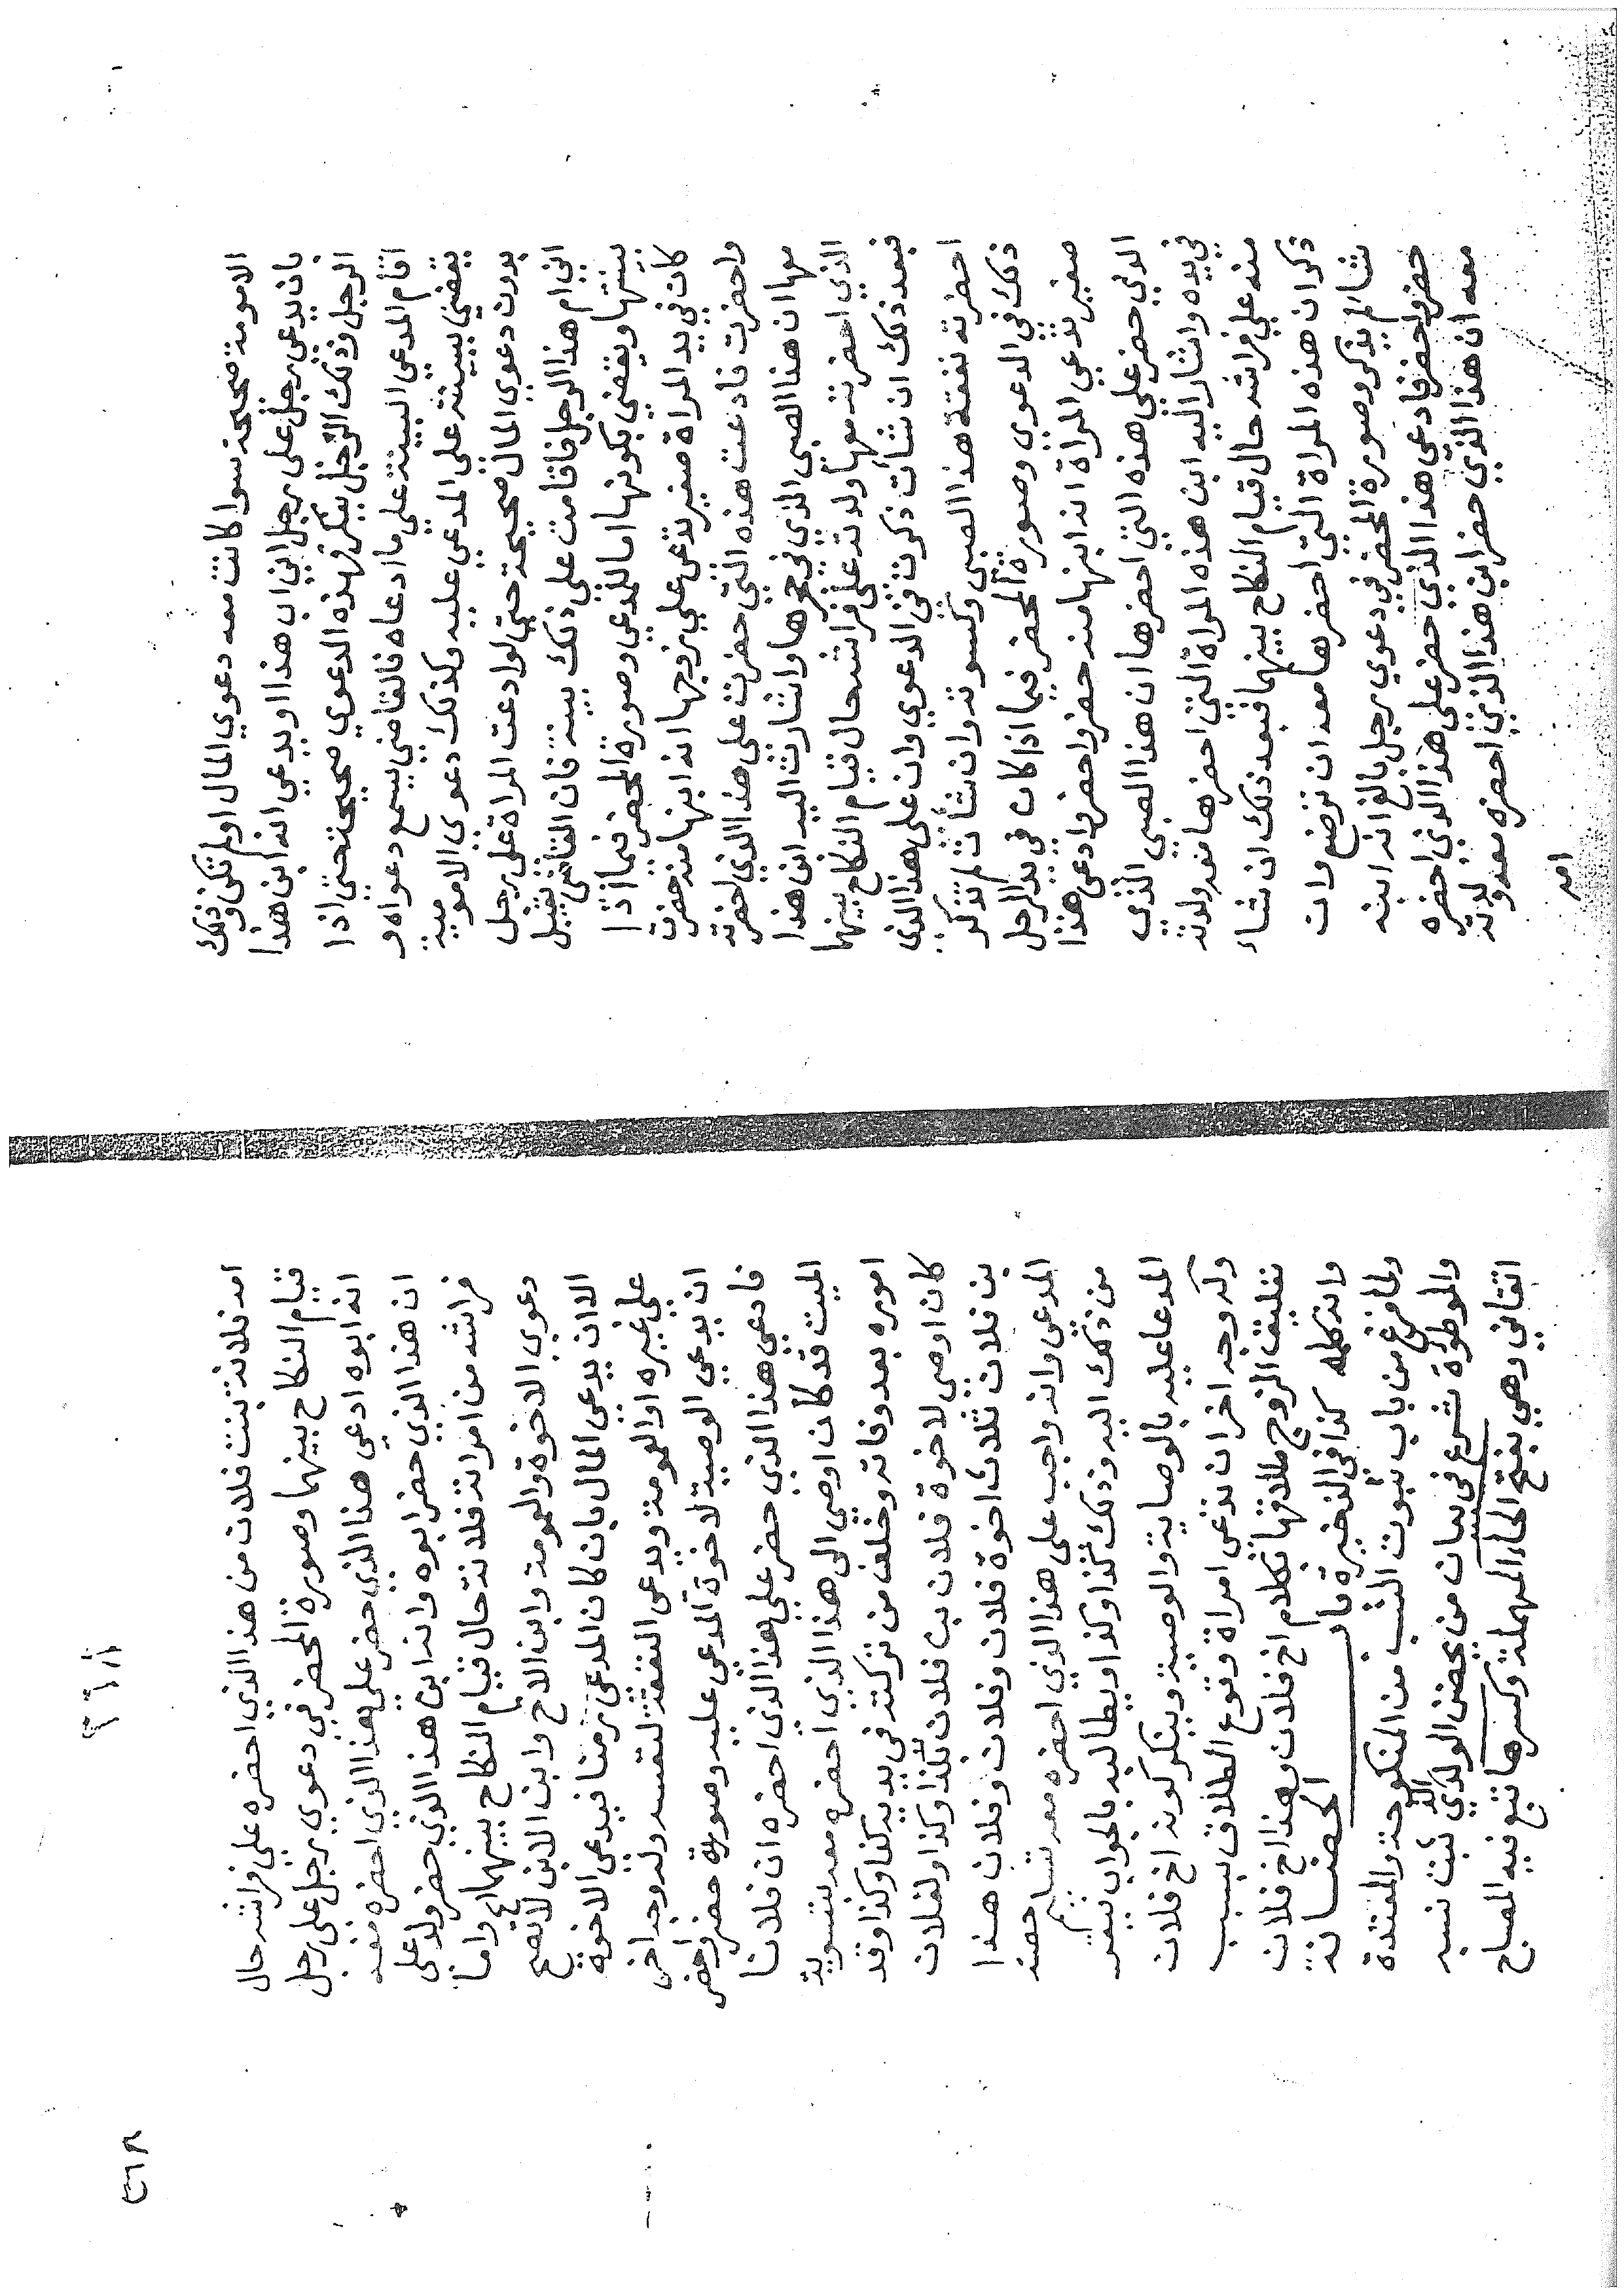 الامومة صحيحة سوا كانت معه دعوي المال او لم تكن وذلك
بان يدعي رجل علي رجل اني اب هذا او يدعي انه ابن هذا
الرجل وذلك الرجل ينكر فهذه الدعوي صحيحة حتي اذا
اقام المدعي البينة علي ما ادعاه فالقاضي يسمع دعواه و
يقضي ببينته علي المدعي عليه وكذلك دعوي الامومية
بدون دعوي المال صحيحة حتي لو ادعت المراة علي رجل
اني ام هذا الرجل فاقامت علي ذلك بينة فان القاضي تقبل
بينتها ويقضي بكونها اما للمدعي وصورة المحضر فيما اذا
كان في يد المراة صغير تدعي علي زوجها انه ابنها منه حضرت
واحضرت فادعت هذه التي حضرت علي هذا الذي احضرته
معها ان هذا الصبي الذي في حجرها واشارت اليه ابن هذا
الذي احضرته معها ولدته علي فراشه حال قيام النكاح بينهما
فبعد ذلك ان شأت ذكرت في الدعوي وان علي هذا الذي
احضرته نفقة هذا الصبي وكسوته وان شأت لم تذكر
ذلك في الدعوي وصورة المحضر فيما اذا كان في يد الرجل
صغير تدعي المراة انه ابنها منه حضر واحضر وادعي هذا
الذي حضر علي هذه التي احضرها ان هذا الصبي الذي
في يده واشار اليه ابن هذه المراة التي احضرها معه ولدته
منه علي فراشه حال قيام النكاح بينهما فبعد ذلك ان شاء
ذكر ان هذه المراة التي احضرها معه ان ترضع وان
شا لم يذكر وصورة المحضر في دعوي رجل بالغ انه ابنه
حضر واحضر فادعي هذا الذي حضر علي هذا الذي احضره
معه ان هذا الذي حضر ابن هذا الذي احضره معه ولدته
امه
امه فلانة بنت فلان من هذا الذي احضره علي فراشه حال
قيام النكاح بينهما وصورة المحضر في دعوي رجل علي رجل
انه ابوه ادعي هذا الذي حضر علي هذا الذي احضره معه
ان هذا الذي حضر ابوه وانه ابن هذا الذي حضر ولد علي
فراشه من امراته فلانة حال قيام النكاح بينهما واما
دعوي الاخوة والعمومة وابن الاخ وابن الابن لا تصح
الا ان يدعي المال بان كان المدعي زمنا فيدعي الاخوة
علي غيره او العمومة ويدعي النفقة لنفسه وله وجه اخر
ان يدعي الوصية لاخوة المدعي عليه وصورة حضر واحضر
فادعي هذا الذي حضر علي هذا الذي احضره ان فلانا
الميت قد كان اوصي الي هذا الذي احضره معه بتسوية
اموره بعد وفاته وخلف من تركته في يديه كذا وكذا وقد
كان اوصي لاخوة فلان بن فلان بكذا وكذا ولفلان
بن فلان ثلاث اخوة فلان وفلان وفلان وفلان هذا
المدعي وانه واجب علي هذا الذي احضره معه تسليم حصته
من ذلك اليه وذلك كذا وكذا ويطالبه بالجواب فيقر
المدعا عليه بالوصاية والوصية وينكر كونه اخ فلان
وله وجه اخر ان تدعي امراة وقوع الطلاق بسبب
تعليق الزوج طلاقها بكلام اخ فلان وهذا اخ فلان
وانه كلمه كذا في الذخيرة قال الحضانة
ولما فرغ من باب ثبوت النسب من المنكوحة والمعتدة
والموطؤة شرع في بيان من يحضن الولد الذي ثبت نسبه
اتقاني وهي بفتح الحاء المهملة وكسرها تتبع فيه المصباح